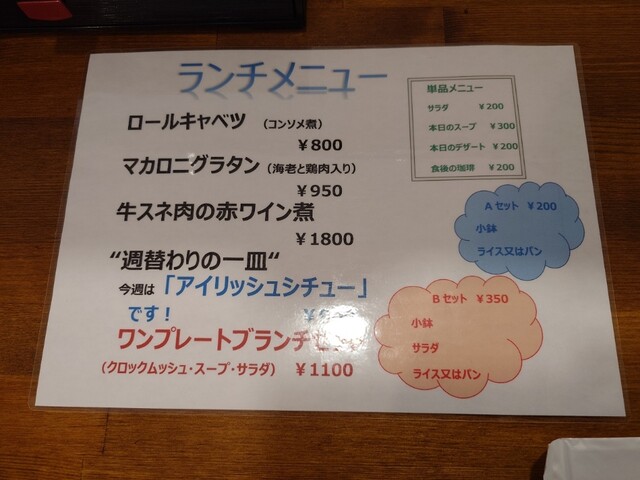 ランチメニュー
ロールキャベツ （コンソメ煮）
￥800
マカロニグラタン（海老と鶏肉入り）
￥950
牛スネ肉の赤ワイン煮
￥1800
“週替わりの一皿“
今週は「アイリッシュシチュー」
です！
ワンプレートブランチ
（クロックムッシュ・スープ・サラダ） ￥1100
単品メニュー
サラダ ￥200
本日のスープ ￥300
本日のデザート ￥200
食後の珈琲 ￥200
Aセット ￥200
小鉢
ライス又はパン
Bセット ￥350
小鉢
サラダ
ライス又はパン